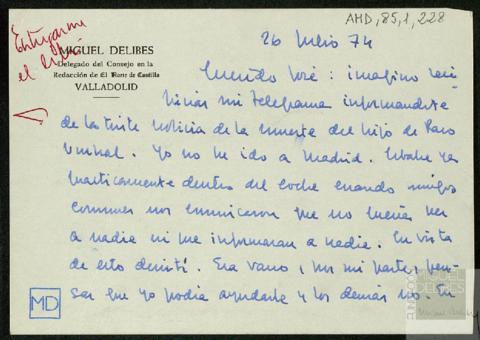 AMD, 85, 1, 228
26 Julio 74
MIGUEL DELIBES
Delegado del Consejo en la
Redacción de El Norte de Castilla
VALLADOLID
Querido José: imagino reci-
birías mi telegrama informándote
de la triste noticia de la muerte del hijo de Paco
Umbral. Yo no he ido a Madrid. Estaba ya
practicamente dentro del coche cuando amigos
comunes nos comunicaron que no quería ver
a nadie ni que informaran a nadie. En vista
de esto desistí. Era vano, por mi parte, pen-
sar que yo podía ayudarle y los demás no. En
MD
MIGUEL
DELIBES